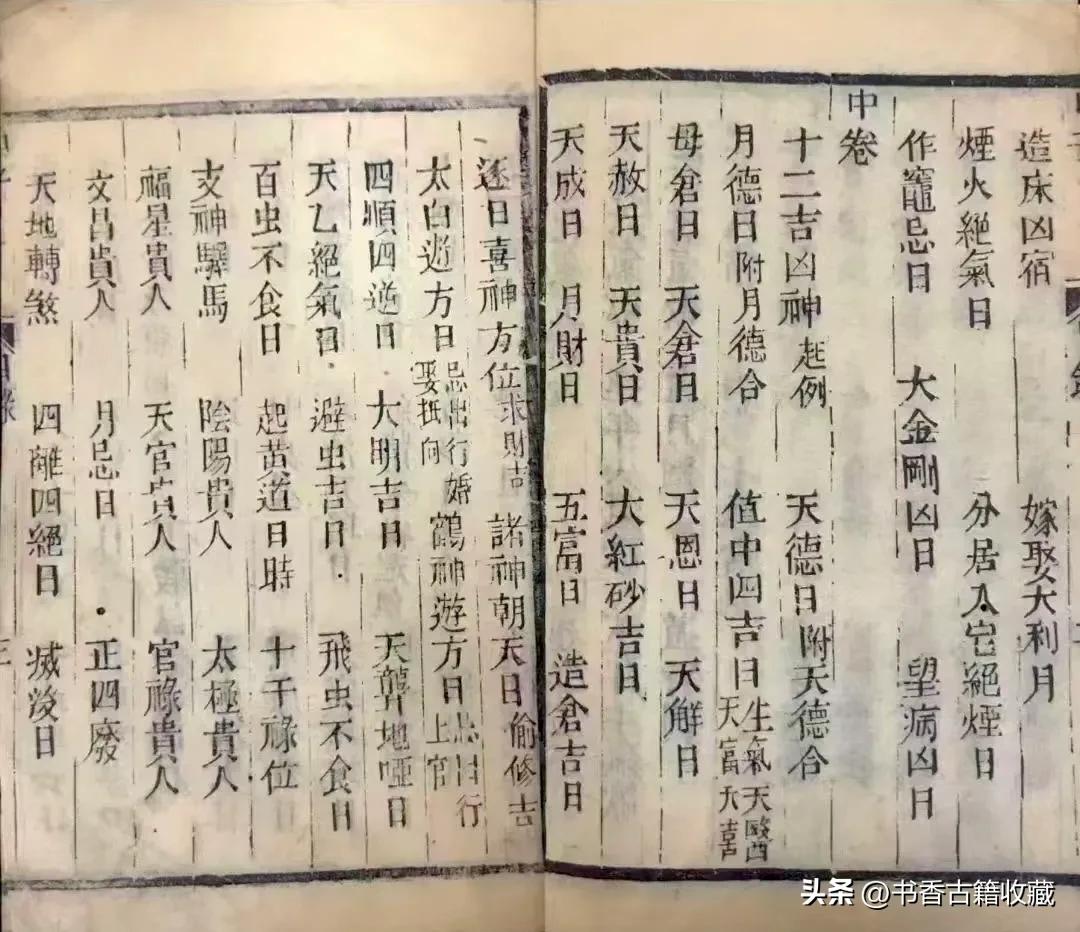 造床凶宿　嫁娶大利月
煙火絕氣日　分居入宅絕煙日
作竈忌日　大金剛凶日　望病凶日
中卷
十二吉凶神起例　天德日附天德合
月德日附月德合　值中四吉日生氣天醫天富天喜
母倉日　天倉日　天恩日　天解日
天赦日　天貴日　大紅砂吉日
天成日　月財日　五富日　造倉吉日
逐日喜神方位求財吉　諸神朝天日偷修吉
太白逰方日忌出行婚娶抵向　鶴神遊方日忌出行上官
四順四逆日　大明吉日　天聾地啞日
天乙絕氣日　避虫吉日　飛虫不食日
百虫不食日　起黃道日時　十干祿位
支神驛馬　陰陽貴人　太極貴人
福星貴人　天官貴人　官祿貴人
文昌貴人　月忌日　正四廢
天地轉煞　四離四絕日　滅沒日
目錄
三
头条 @书香古籍收藏